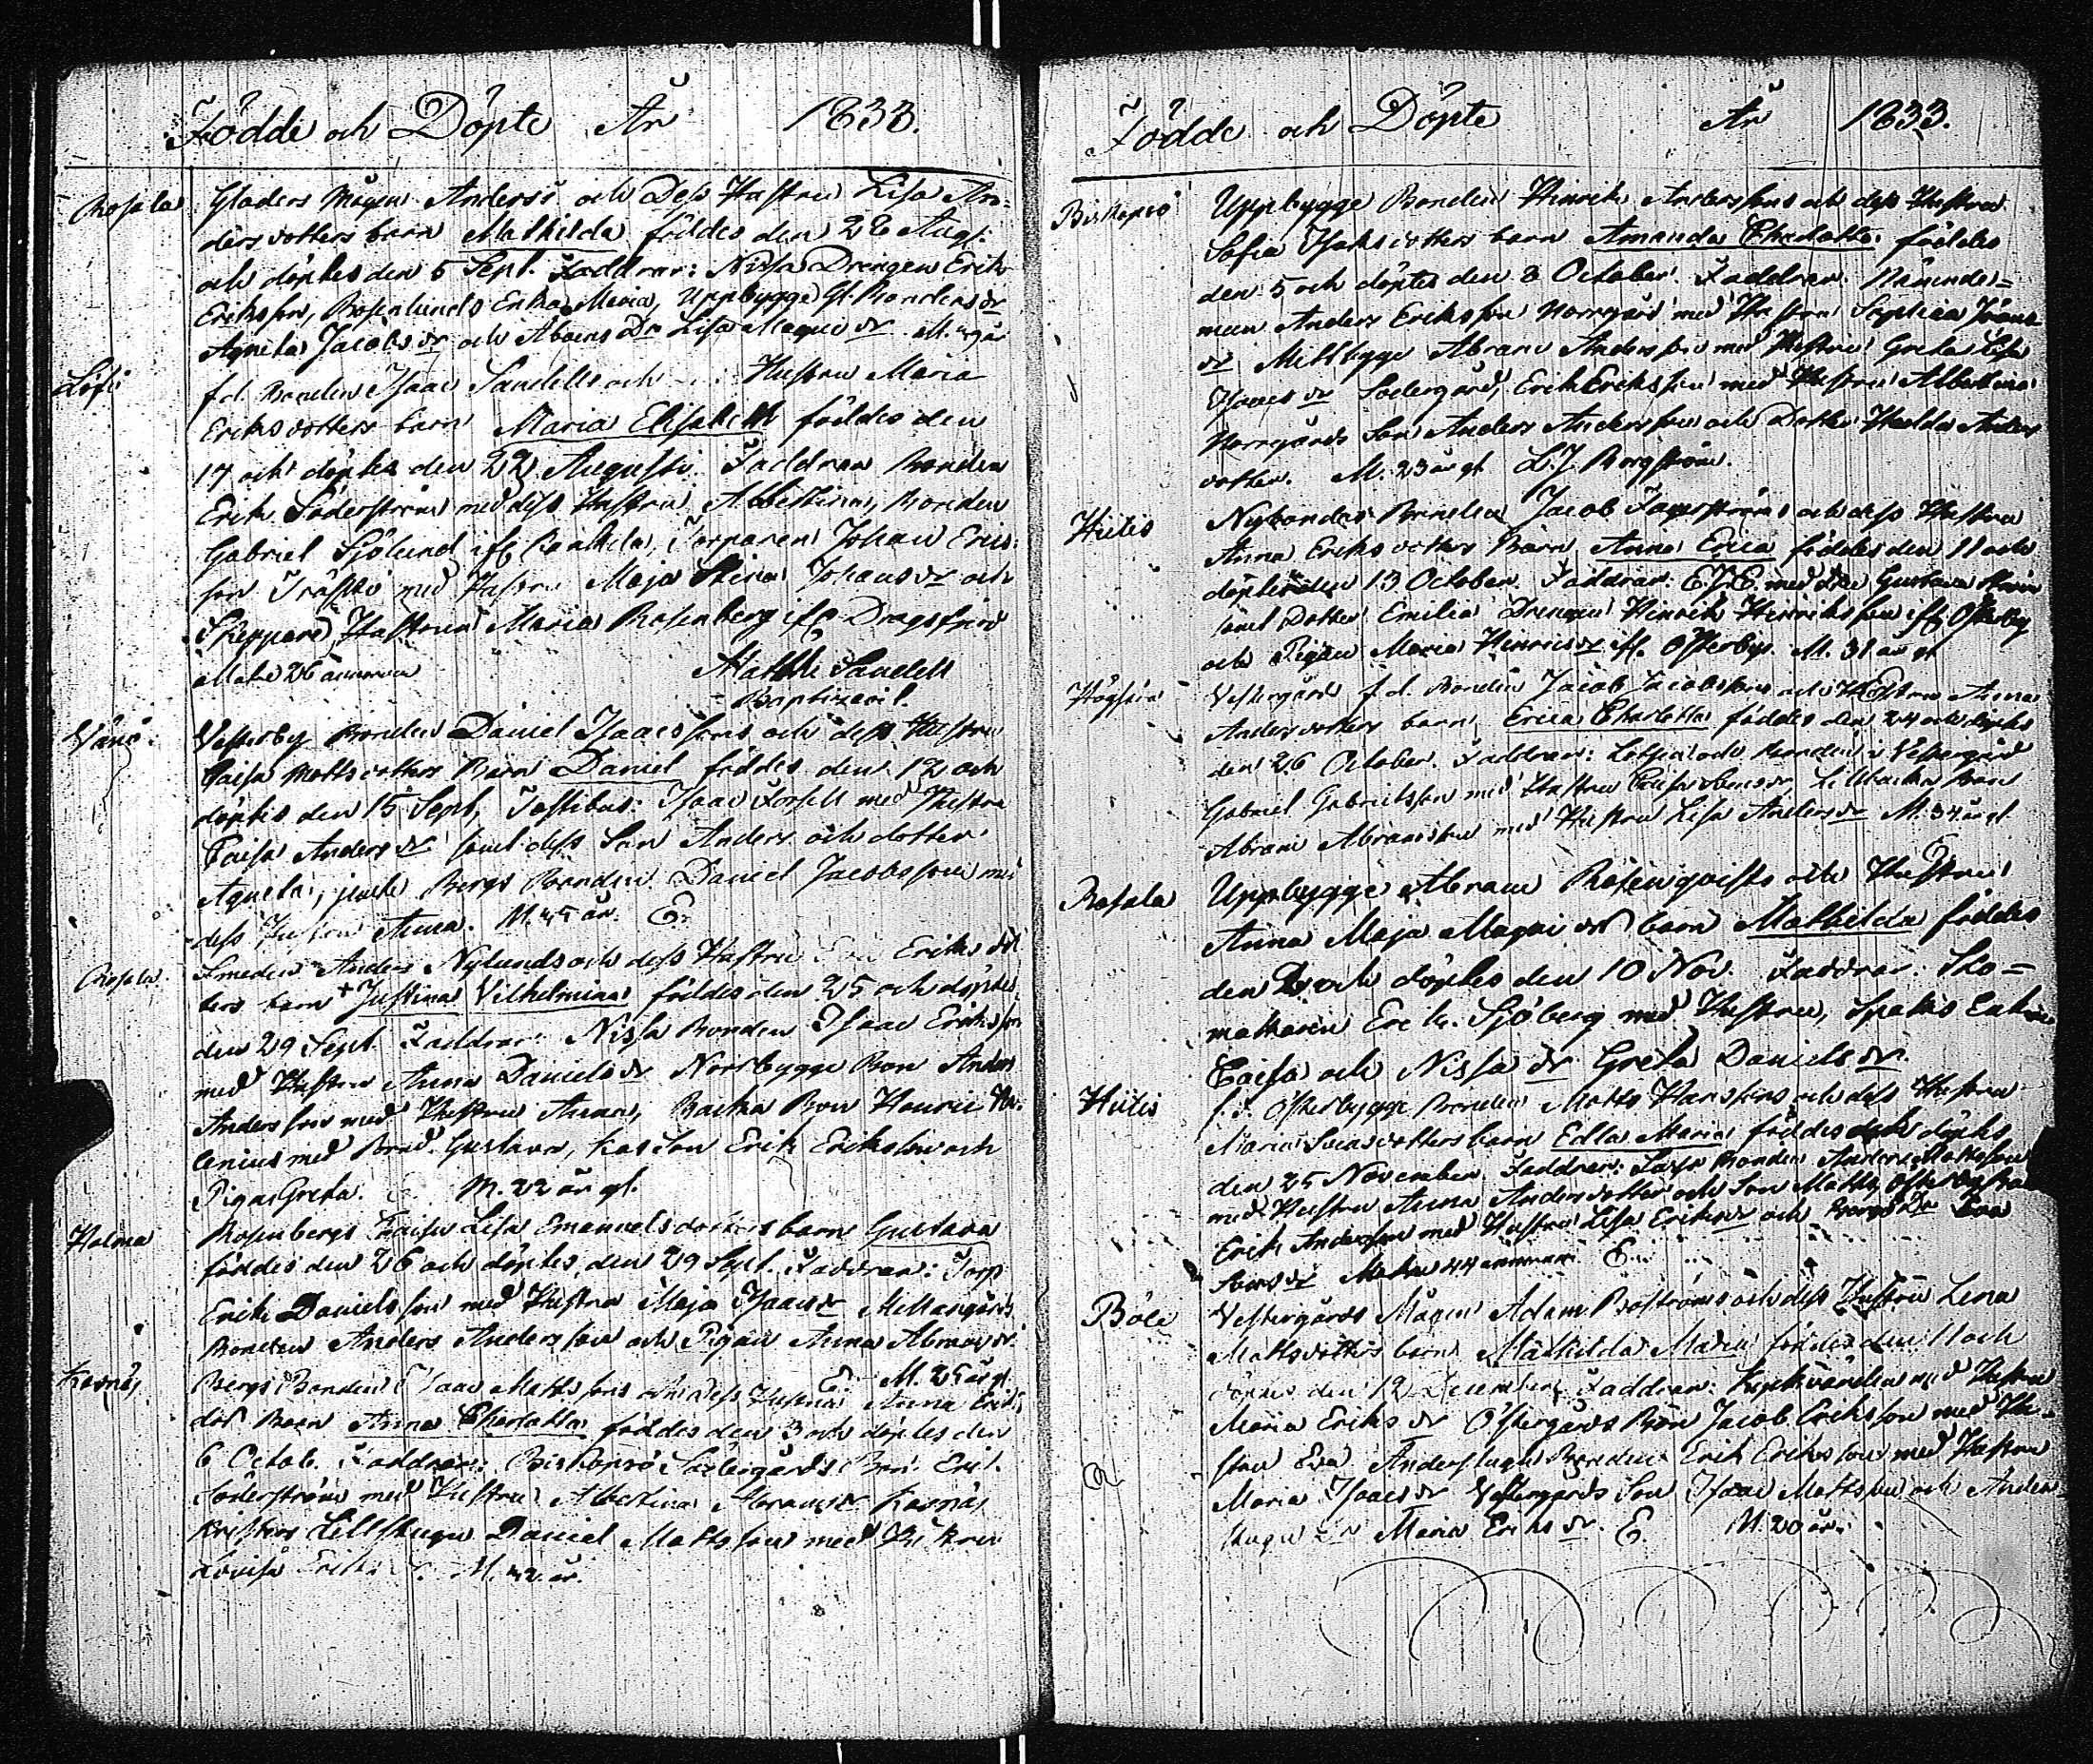 Födde och Döpte År 1833.
Rosala
Gladers Mågen Anderss och Dess Hustru Lisa An=
dersdotters barn Mathilda föddes den 28 Aug.
och döptes den 5 Sept. Faddrar: Nissa Drengen Erik
Eriksson, Rosenlunds Erika Maria, Uppbygge Gl. Bondens dr
Agneta Jacobs dr och Åboens Dr Lisa Magni dr M. år
Löfö
f.d. Bonden Isaac Sandells och Hustru Maria
Eriksdotters barn Maria Elisabeth föddes den
17 och döptes den 22 Augusti. Faddrar Bonden
Erik Söderström med dess Hustru Albertina, Bonden
Gabriel Sjölund ifr. Torparen Johan Erics
son Träskö med Hustru Maja Stina Johansdr och
Skeppare Hustrun Maria Rosenberg ifr. Dragsfjerd
26 annorum Matth. Sandell
Baptizavit.
Vänö.
Vesterby Bonden Daniel Isaacssons och dess Hustru
Caisa Mattsdotters Barn Daniel föddes den 12 och
döptes den 15 Sept, Testibus: Isaac Forsell med Hustru
Caisa Anders dr samt dess Son Anders och dotter
Agneta, Bergs Bonden Daniel Jacobsson med
dess Hustru Anna. M. 45 år. E.
Rosala
Smeden Anders Nylunds och dess Hustru Eriks dot
ters barn + Justina Vilhelmina föddes den 25 och döptes
den 29 Sept. Faddrar: Nissa Bonden Isaac Eriksson
med Hustru Anna Daniels dr Norrbygge Bon Anders
Andersson med Hustru Anna, Backa Bon Henric He=
lenius med Gustava, Son Erik Eriksson och
Pigan Greta. E. M. 22 år gl.
Holma
Rosenbergs Caisa Lisa Emanuelsdotters barn Gustava
föddes den 26 och döptes den 29 Sept. Faddrar: Torp
Erik Danielsson med Hustru Maja Isaacs dr Mellangårds
Bonden Anders Andersson och Pigan Anna Abrams dr.
E. M. 25 år gl.
Kasnäs
Bergs Bonden Isaac Mattssons och dess Hustru Anna Eriks
dot Barn Anna Charlotta föddes den 3 och döptes den
6 Octob. Faddrar: Biskopsö Södergårds Bon. Erik
Söderström med Hustru Albertina Abrams dr Kasnäs
Lillstugu Daniel Mattsson med Hustru
Lovisa Eriks dr. M. 42 år.
Födde och Döpte År 1833.
Biskopsö
Uppbygge Bonden Hinrik Anderssons och dess Hustru
Sofia Isaksdotters barn Amanda Charlotta föddes
den 5 och döptes den 8 October. Faddrar: Nämnde=
man Anders Eriksson Norrgård med Hustru Sophia Jöans
dr Mellbygge Abram Andersson med Hustru Greta Lisa
Isaacs dr Södergård, Erik Eriksson med Hustru Albertina
Norrgårds Son Anders Andersson och Dotter Hedda Anders
dotter. M. 23 år gl. L.J. Borgström.
Hitis
Nybondas Bonden Jacob Fagerströms och dess Hustru
Anna Eriksdotters Barn Anna Erica föddes den 11 och
döptes den 13 October. Faddrar: E.J.E. med Gustava
samt Dotter Emilia Drengen Hinrik Hinriksson ifr. Österby
och Pigan Maria Hinrics dr ifr. Österby. M. 31 år gl.
Högsåra
Vestergårds f.d. Bonden Jacob Jacobssons och Hustru Anna
Andersdotters barn Erica Charlotta föddes den 24 och döptes
den 26 October. Faddrar: Lotsen och Bonden i Vestergård
Gabriel Gabrielsson med Hustru Caisa dr, Lillbacka Bon
Abram Abramsson med Hustru Lisa Anders dr M. 34 år gl.
E.
Rosala
Uppbygge Abram Rosenqvists och Hustru
Anna Maja Magni dr barn Mathilda föddes
den 2 och döptes den 10 Nov. Faddrar: Sko=
makaren Erik Sjöberg med Hustru, Spakes Enkan
Caisa och Nissa dr Greta Daniels dr.
Hitis
f.d. Österbygge Bonden Matts Hanssons och dess Hustru
Maria dotters barn Edla Maria föddes och döptes
den 25 November. Faddrar: Bonden Anders Mattsson
med Hustru Anna Andersdotter och Son Matts, Österbygge
Erik Andersson med Hustru Lisa Eriks dr och Bergs Dr Eva
dr Mater 44 annorum E.
Böle
Vestergårds Mågen Adam Boströms och dess Hustru Lena
Mattsdotters barn Mathilda Maria föddes den 11 och
döptes den 12 December. Faddrar: med Hustru
Maria Eriks dr Östergårds Bon Jacob Eriksson med Hu=
stru Eva Anderstugu Bonden Erik Eriksson med Hustru
Maria Isaacs dr Vestergårds Son Isaac Mattsson och Anders
stugu dr Maria Eriks dr. E. M. 20 år.